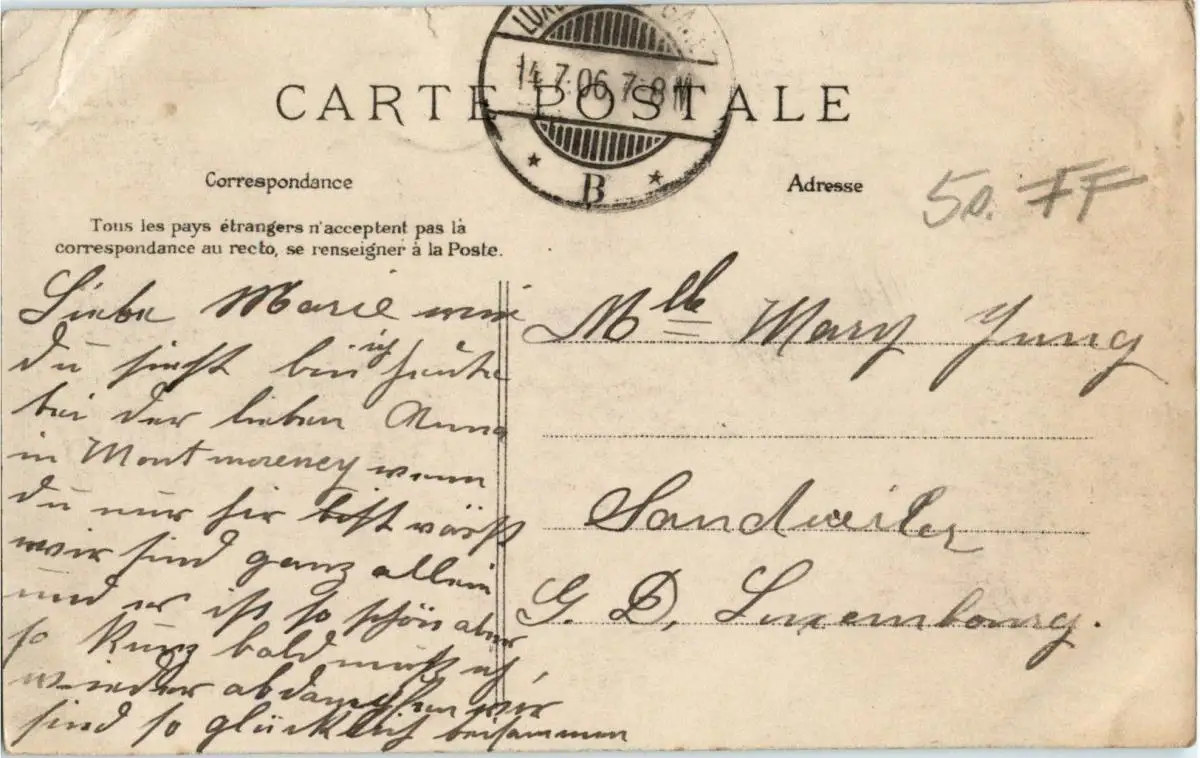 14.7.06.7-8N
CARTE POSTALE
B
Correspondance
Adresse
50. FF
Tous les pays étrangers n'acceptent pas la
correspondance au recto, se renseigner à la Poste.
Liebe Marie wie
du siehst bin ich heute
bei der lieben
in Montmorency wenn
du nur hir bist wärst
wir sind ganz allein
und es ist so schön aber
so kurz bald muß ich
wieder abdampfen wir
sind so glücklich beisammen
Mlle Mary Jung
Sandweiler
G. D. Luxembourg.